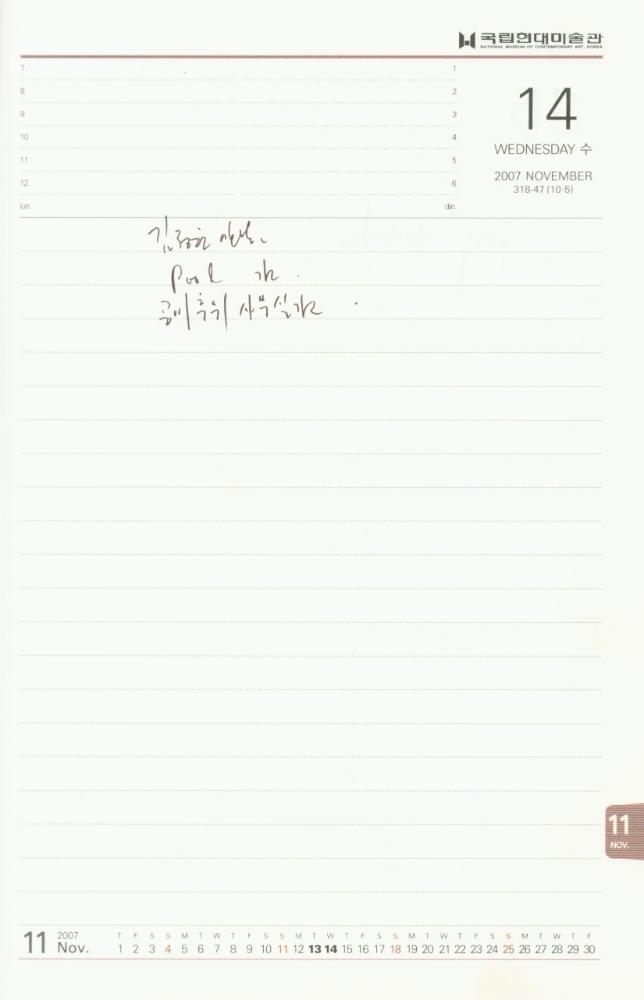 국립현대미술관
NATIONAL MUSEUM OF CONTEMPORARY ART, KOREA
7 1
8 2
9 3
10 4
11 5
12 6
lun. din.
14
WEDNESDAY 수
2007 NOVEMBER
318-47 (10-5)
Pool 가.
사무실 가.
11
NOV.
11 2007 Nov.
T F S S M T W T F S S M T W T F S S M T W T F S S M T W T F
1 2 3 4 5 6 7 8 9 10 11 12 13 14 15 16 17 18 19 20 21 22 23 24 25 26 27 28 29 30